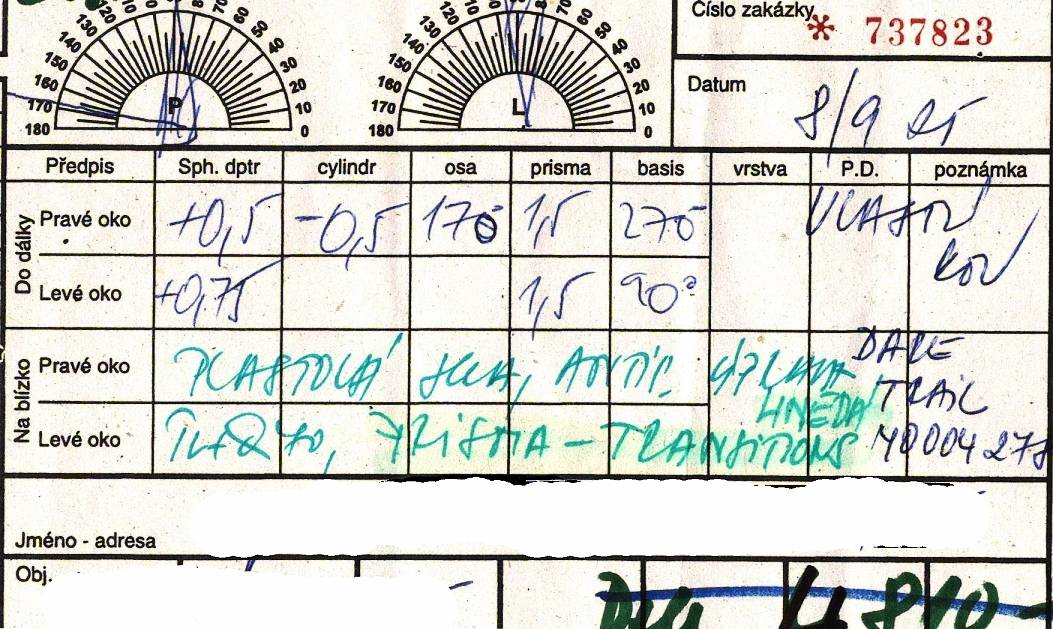 Číslo zakázky * 737823
Datum 8/9
180 170 160 150 140 130 P 70 60 50 40 30 20 10 0
180 170 160 150 140 130 120 L 70 60 50 40 30 20 10 0
Předpis Sph. dptr cylindr osa prisma basis vrstva P.D. poznámka
Do dálky
Pravé oko +0,5 -0,5 170 1,5 270 VLASTNÍ
KOV
Levé oko +0,75 1,5 90°
Na blízko
Pravé oko PLASTOVÁ SKLA, ANTIR. ÚPRAVA DARE
HNĚDÁ TRAIL
Levé oko PRISMA - TRANSITIONS 40004278
Jméno - adresa
Obj.